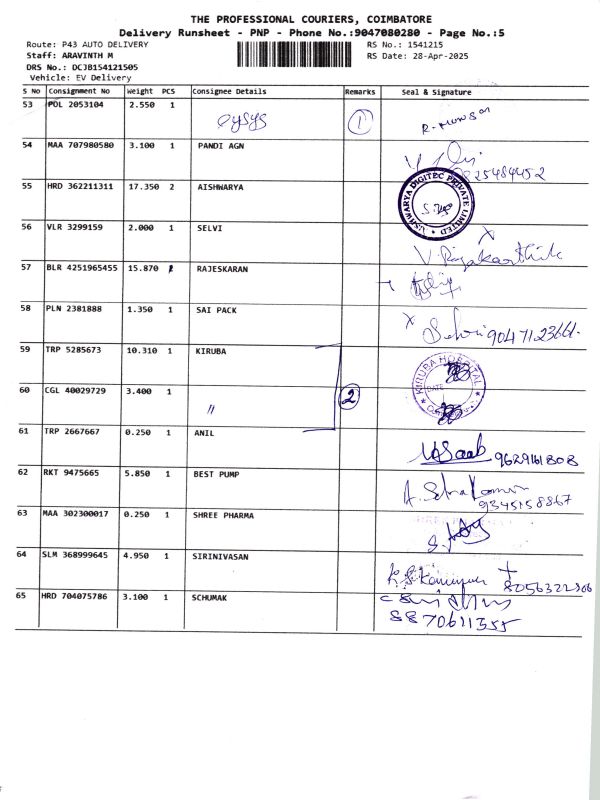 THE PROFESSIONAL COURIERS, COIMBATORE
Delivery Runsheet - PNP - Phone No.:9047080280 - Page No.:5
Route: P43 AUTO DELIVERY RS No.: 1541215
Staff: ARAVINTH M RS Date: 28-Apr-2025
DRS No.: DCJB154121505
Vehicle: EV Delivery
S No Consignment No Weight PCS Consignee Details Remarks Seal & Signature
53 POL 2053104 2.550 1 1
54 MAA 707980580 3.100 1 PANDI AGN
55 HRD 362211311 17.350 2 AISHWARYA
56 VLR 3299159 2.000 1 SELVI
57 BLR 4251965455 15.870 RAJESKARAN
58 PLN 2381888 1.350 1 SAI PACK
59 TRP 5285673 10.310 1 KIRUBA KIRUBA HOSPITAL DATE
60 CGL 40029729 3.400 1 〃 2
61 TRP 2667667 0.250 1 ANIL 9629161808
62 RKT 9475665 5.850 1 BEST PUMP 9345158867
63 MAA 302300017 0.250 1 SHREE PHARMA
64 SLM 368999645 4.950 1 SIRINIVASAN
65 HRD 704075786 3.100 1 SCHUMAK